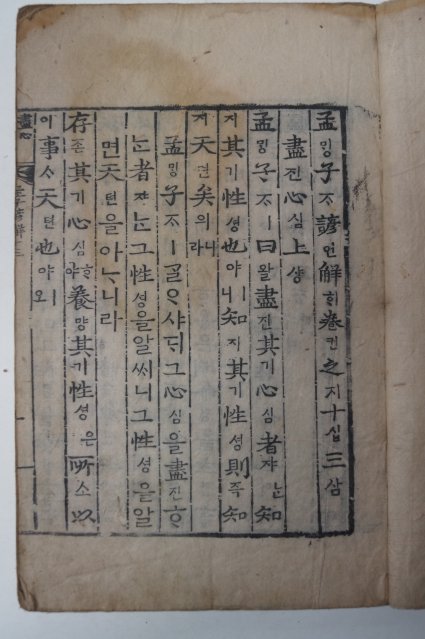 孟밍子ᄌᆞ諺언解ᄒᆡ卷권之지十십三삼
盡진心심上샹
孟밍子ᄌᆞㅣ曰왈盡진其기心심者쟈ᄂᆞᆫ知
지其기性셩也야ㅣ니知지其기性셩則즉知
지天텬矣의니라
孟밍子ᄌᆞㅣᄀᆞᆯᄋᆞ샤ᄃᆡ그心심을盡진ᄒᆞ
ᄂᆞᆫ者쟈ᄂᆞᆫ그性셩을알씨니그性셩을알
면天텬을아ᄂᆞ니라
存존其기心심ᄒᆞ야養양其기性셩은所소以
이事ᄉᆞ天텬也야ㅣ오
盡心